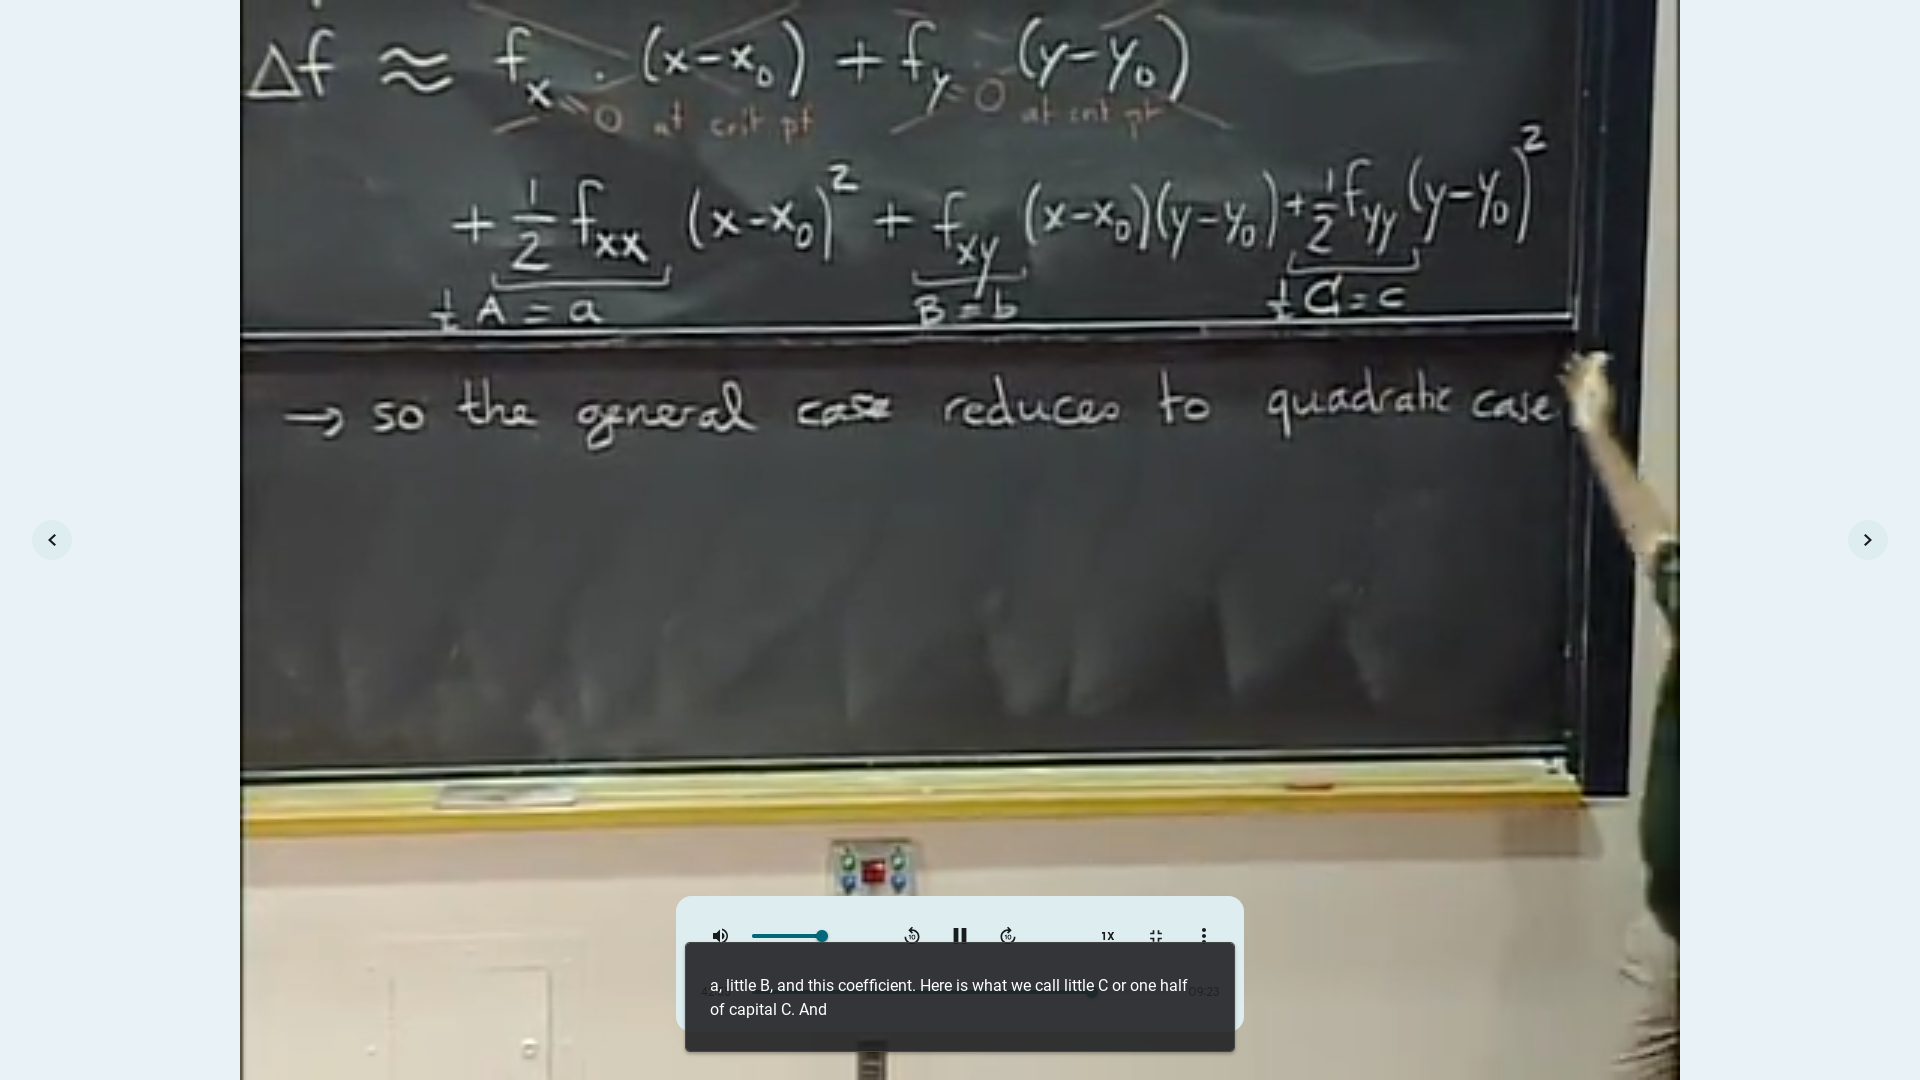 Δf ≈ f_x · (x-x₀) + f_y · (y-y₀)
=0 at crit pt =0 at crit pt
+ 1/2 f_xx (x-x₀)² + f_xy (x-x₀)(y-y₀) + 1/2 f_yy (y-y₀)²
1/2 A = a B = b 1/2 C = c
→ so the general case reduces to quadratic case
1X
a, little B, and this coefficient. Here is what we call little C or one half
of capital C. And